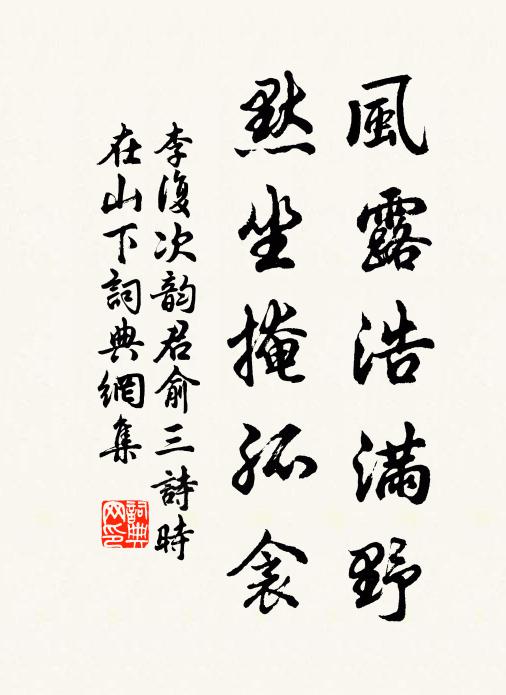 風露浩滿野
默坐掩孤衾
李復次韵君俞三詩時
在山下詞典網集
詞典网印